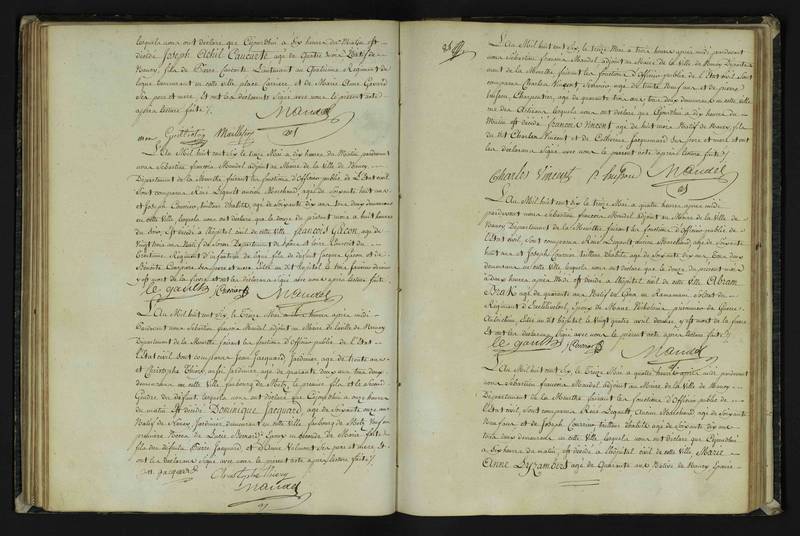 lesquels nous ont déclaré que Cejourdhui à Six heures du Matin est
décédé Joseph Achil agé de Quatre mois Natif de
Nancy, fils de Pierre Lieutenant au Quatrième Régiment de
ligne demeurant en cette ville place Carrière et de Marie Anne
Ses pere et mere. Et ont les déclarants Signé avec nous le présent acte
après lecture faite.
Mandel
L'An Mil huit cent Six le treize Mai à dix heures du Matin pardevant
nous Sébastien françois Mandel adjoint au Maire de la Ville de Nancy
Département de la Meurthe faisant les fonctions d'Officier public de l'Etat civil
Sont comparus René Legault ancien Marchand, agé de Soixante huit ans
et Joseph Courrier, tailleur d'habits, agé de Soixante dix ans tous deux demeurans
en cette Ville lesquels nous ont déclaré que le douze du présent mois à huit heures
du Soir, Est décédé à l'hôpital civil de cette Ville françois Gacon, agé de
Vingt trois ans Natif de Département de Saône et Loire
Régiment d'infanterie de ligne fils de défunt Jacques Gacon et de
Ses pere et mere Entré au dit hôpital le trois février dernier
y est mort de la fievre et ont les déclarans Signé avec nous après lecture faite
le gault Courrier Mandel
L'An Mil huit cent Six, le Treize Mai à heures après midi
Pardevant nous Sébastien françois Mandel adjoint au Maire de la Ville de Nancy
Département de la Meurthe faisant les fonctions d'Officier public de l'Etat
l'Etat civil Sont comparus Jean Jacquard Jardinier, agé de trente ans
et Christophe Thiery, aussi Jardinier, agé de quarante deux ans tous deux
demeurans en cette Ville faubourg de Metz le premier fils et le Second
Gendre du défunt, lesquels nous ont déclaré que Cejourdhui à onze heures
du matin Est décédé Dominique Jacquard, agé de Soixante onze ans
Natif de Nancy Jardinier, demeurant en cette Ville faubourg de Metz Veuf en
première Noces de Lucie Epoux en Seconde de Marie
fils des défunts Pierre Jacquard et d'Anne Ses pere et mere. Et
ont les déclarans Signé avec nous le présent acte après lecture faite
jacquard Christophe Thiery
Mandel
L'An Mil huit cent Six, le treize Mai à trois heures après midi pardevant
nous Sébastien françois Mandel, adjoint au Maire de la Ville de Nancy Départe
ment de la Meurthe, faisant les fonctions d'Officier public de l'Etat civil Sont
comparus Charles Vincent agé de trente Neuf ans et de pierre
husson, Charpentier, agé de quarante six ans tous deux demeurans en cette ville
lesquels nous ont déclaré que Cejourdhui à dix heures du
Matin est décédé françois Vincent agé de huit mois Natif de Nancy, fils
du dit Charles Vincent et de Catherine Jacquemard Ses pere et mere et ont
les déclarans Signé avec nous le présent acte après lecture faite
Charles Vincent P. husson Mandel
L'An Mil huit cent Six le treize Mai à quatre heures après midi
pardevant nous Sébastien françois Mandel adjoint au Maire de la Ville de
Nancy Département de la Meurthe faisant les fonctions d'Officier public de
l'Etat civil, Sont comparus René Legault ancien Marchand, agé de Soixante
huit ans et Joseph Courrier tailleur d'habits, agé de Soixante dix ans tous deux
demeurans en cette Ville, lesquels nous ont déclaré que le douze du présent mois
à deux heures après Midi est décédé à l'hôpital civil de cette Ville Abram
agé de quarante ans Natif de Soldat du
Régiment Epoux de Marie prisonnier de Guerre
Autrichien, Entré au dit hôpital le vingt quatre avril dernier y est mort de la fievre
Et ont les déclarans, Signé avec nous le présent acte après lecture faite
le gault Courrier Mandel
L'An Mil huit cent Six le treize Mai à quatre heures après midi pardevant
nous Sébastien françois Mandel adjoint au Maire de la Ville de Nancy
Département de la Meurthe faisant les fonctions d'Officier public de
l'Etat civil, Sont comparus René Legault, Ancien Marchand agé de Soixante
huit ans et de Joseph Courrier tailleur d'habits agé de Soixante dix ans
tous deux demeurans en cette Ville lesquels nous ont déclaré que Cejourdhui
à Six heures du matin, est décédé à l'hôpital civil de cette Ville Marie
Anne agé de Quarante ans Native de Nancy